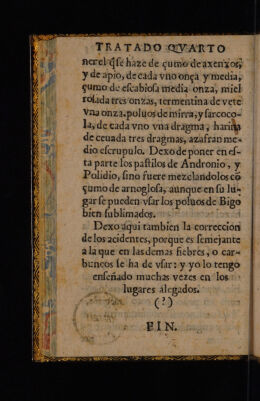 TRATADO QVARTO
ner el q̃se haze de çumo de axenxos,
y de apio, de cada vno onça y media,
çumo de escabiosa media onza, miel
rosada tres onzas, termentina de vete
vna onza. poluos de mirra, y sarcoco-
la, de cada vno vna dragma, harina
de ceuada tres dragmas, azafran me-
dio escrupulo. Dexo de poner en es-
ta parte los pastilos de Andronio, y
Polidio, sino fuere mezclandolos cõ
çumo de arnoglosa, aunque en su lu-
gar se pueden vsar los poluos de Bigo
bien sublimados.
Dexo aqui tambien la correccion
de los accidentes, porque es semejante
a la que en las demas fiebres, o car-
buncos se ha de vsar: y yo lo tengo
enseñado muchas vezes en los
lugares alegados.
(?)
FIN.